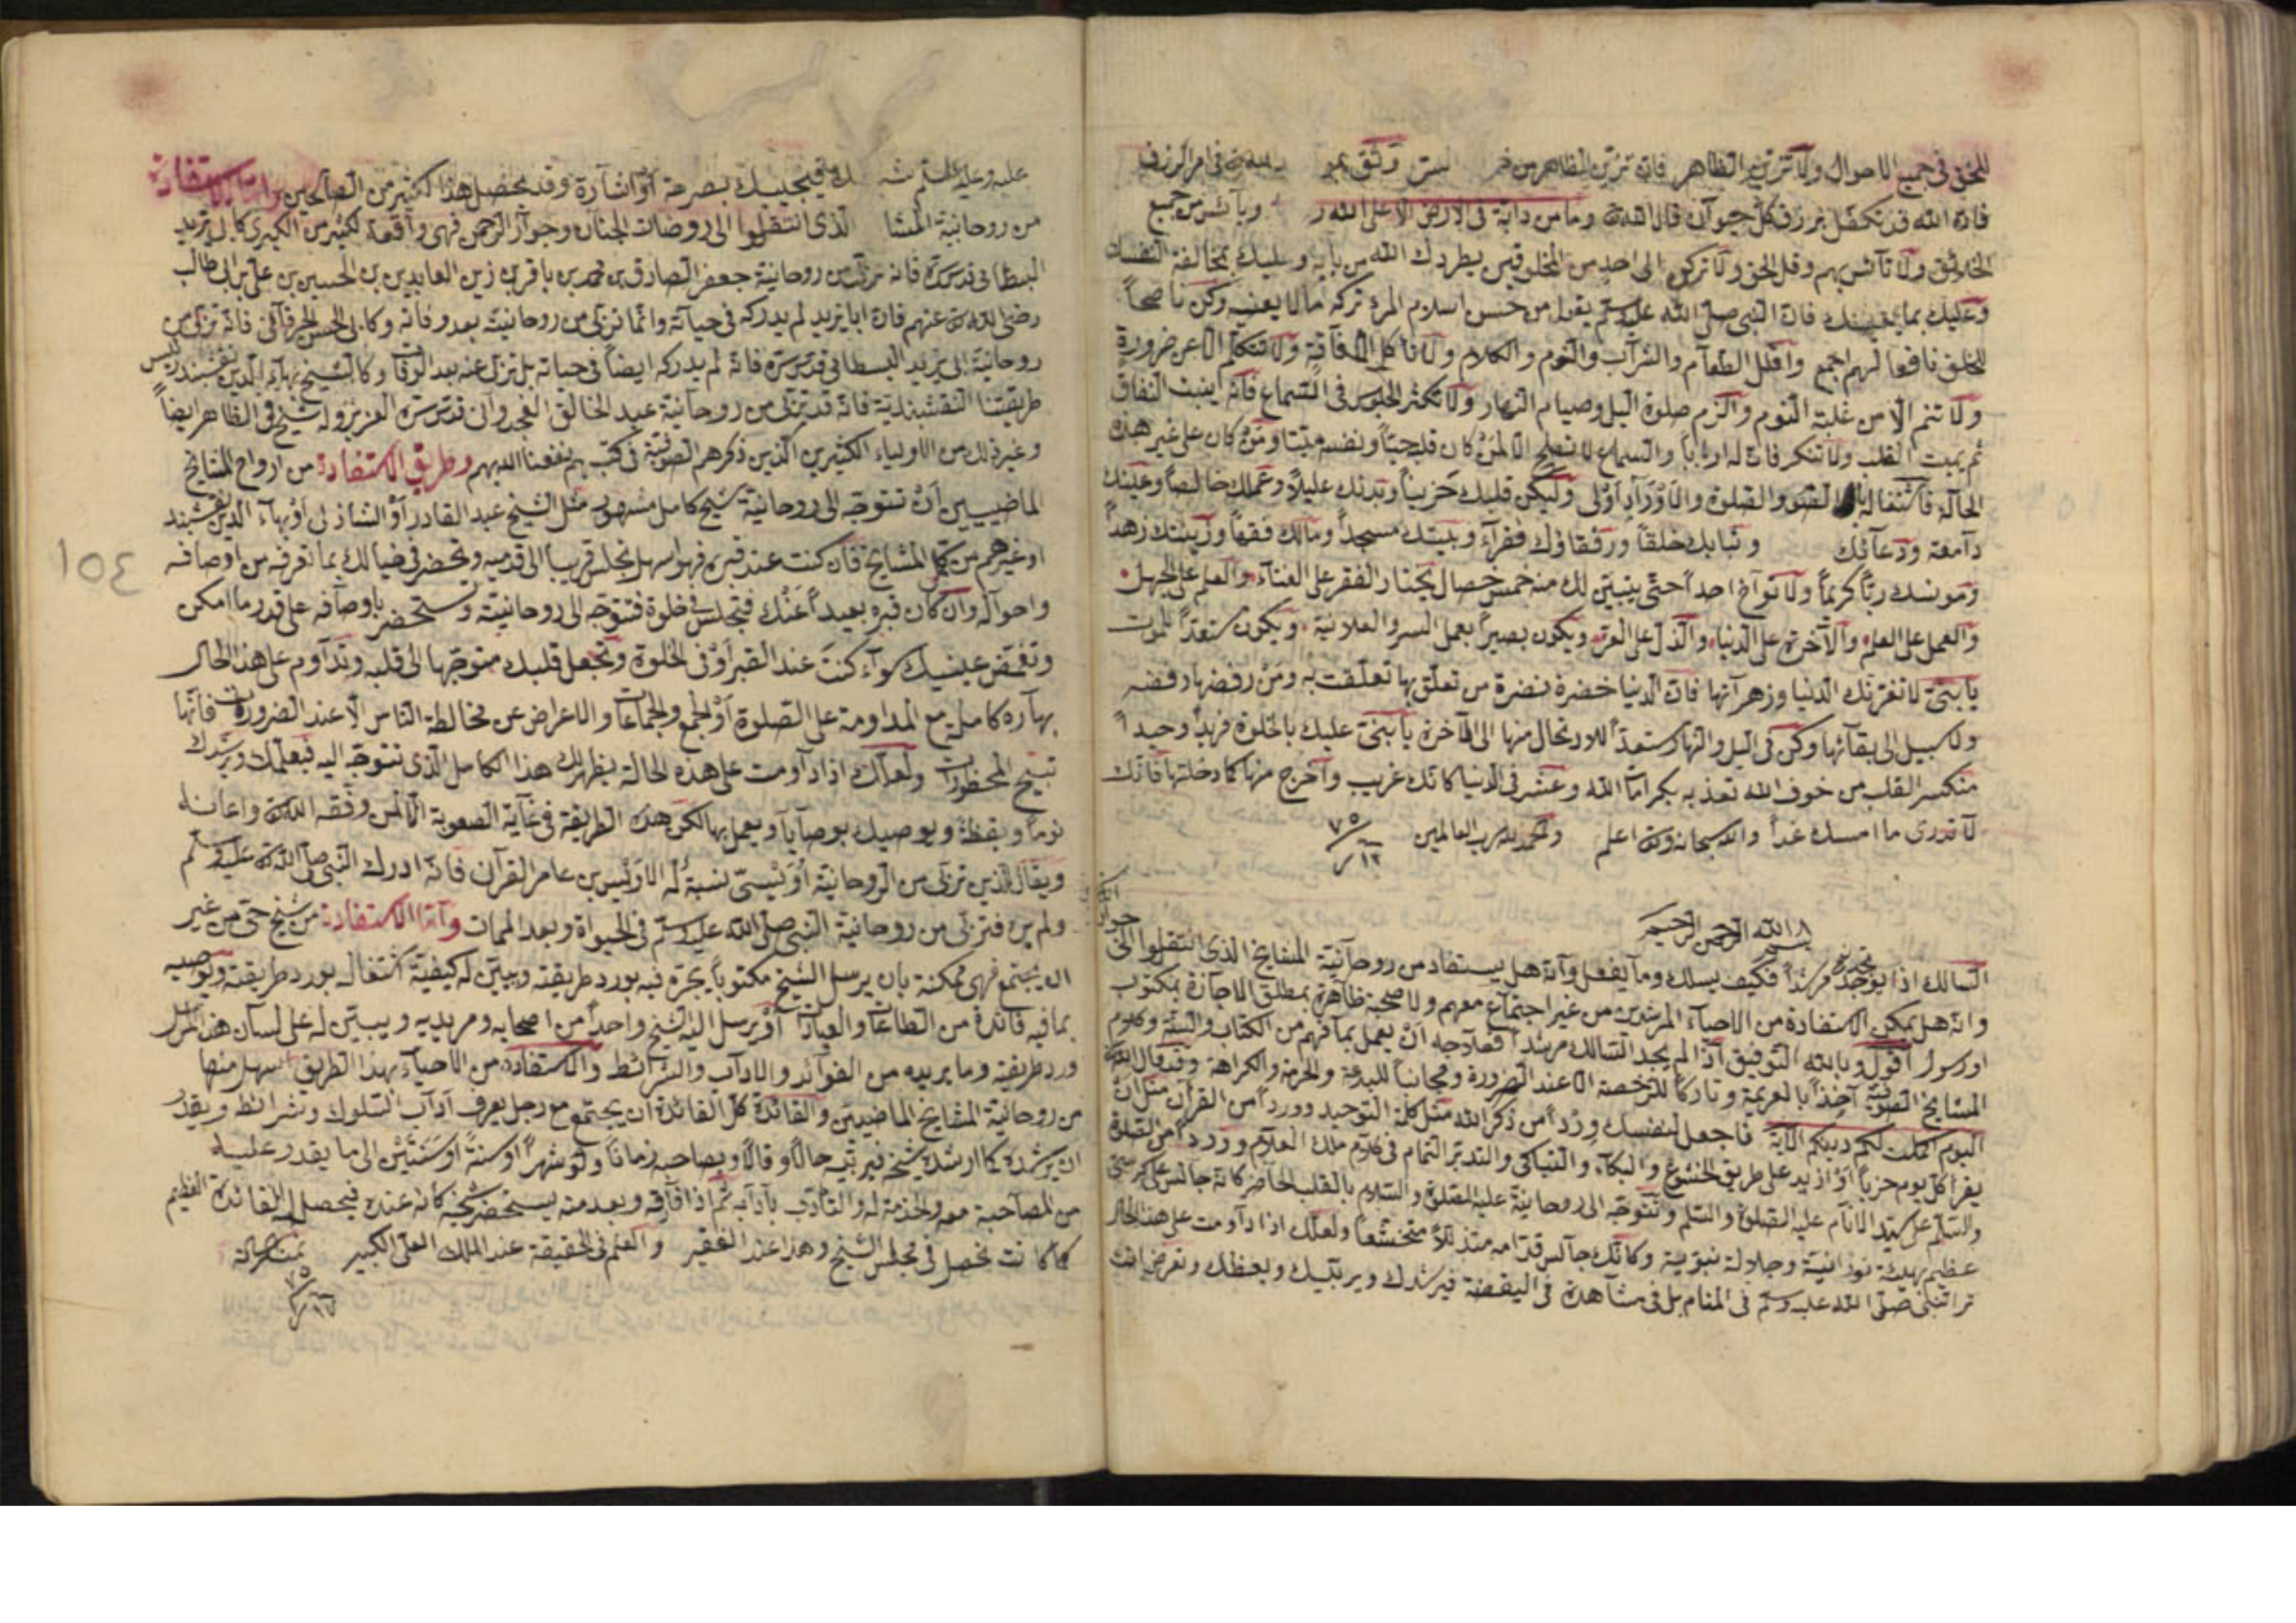 للحق في جميع الاحوال ولا تزين الظاهر فان تزين الظاهر من وثق في امر الرزق
فان الله قد تكفل برزق كل حيوان قال الله وما من دابة في الارض الا على الله وبأئس من جميع
الخلائق ولا تأنس بهم وقل الحق ولا تركن الى احد من المخلوقين يطردك الله من بابه وعليك بمخالفة النفس
وعليك بما يعنيك فان النبي صلى الله عليه وسلم يقول من حسن اسلام المرء تركه ما لا يعنيه وكن ناصحاً
للخلق نافعا لهم اجمع واقلل الطعام والشراب والنوم والكلام ولا تأكل الا فاقة ولا تتكلم الا عن ضرورة
ولا تنم الا من غلبة النوم والزم صلوة اليل وصيام النهار ولا تكثر الجلوس في السماع فانه ينبت النفاق
ثم يميت القلب ولا تنكر فان له ارباباً والسماع لا يصلح الا لمن كان قلبه حيّاً ونفسه ميّتا ومن كان على غير هذه
الحالة فاشتغاله بالصوم والصلوة والاوراد اولى وليكن قلبك حزيناً وبدنك عليلاً وعملك خالصاً وعينك
دامعة ودعاؤك وثيابك خلقاً ورفقاؤك فقراء وبيتك مسجداً ومالك فقهاً وزينتك زهداً
ومونسك ربّاً كريماً ولا تواخ احداً حتى يتبين لك منه خمس خصال يختار الفقر على الغناء والعلم على الجهل
والعمل على العلم والآخرة على الدنيا والذل على العز ويكون بصيراً بعمل السر والعلانية ويكون مستعدّاً للموت
يا بني لا تغرنك الدنيا وزهراتها فان الدنيا خضرة نضرة من تعلق بها تعلقت به ومن رفضها رفضه
ولا سبيل الى بقائها وكن في اليل والنهار مستعداً للارتحال منها الى الآخرة يا بني عليك بالخلوة فريداً وحيداً
منكسر القلب من خوف الله تعذيه بكرامات الله وعش في الدنيا كانك غريب واخرج منها كما دخلتها فانك
لا تدري ما امسك غداً والله سبحانه وتعالى اعلم والحمد لله رب العالمين
٧٥
١٢
بسم الله الرحمن الرحيم
السالك اذا لم يجد مرشداً فكيف يسلك وما يفعل وانه هل يستفاد من روحانية المشايخ الذي انتقلوا الى
وانه هل يمكن الاستفادة من الاحياء المرشدين من غير اجتماع معهم ولا صحبة ظاهرة بمطلق الاجازة بمكتوب
او رسول اقول وبالله التوفيق اذا لم يجد السالك مرشداً فعلاجه ان يعمل بما فهم من الكتاب والسنة وكلام
المشايخ الصوفية آخذاً بالعزيمة وتاركاً للرخصة الا عند الضرورة ومجانباً للبدعة والحرمة والكراهة وقد قال الله
اليوم اكملت لكم دينكم الآية فاجعل لنفسك ورداً من ذكر الله مثل كلمة التوحيد وورداً من القرآن مثل ان
يقرأ كل يوم حزباً او ازيد على طريق الخشوع والبكاء والتباكي والتدبر التمام في كلام ملك العلام وورداً من الصلوة
والسلام على سيد الانام عليه الصلوة والسلم وتتوجه الى روحانية عليه الصلوة والسلام بالقلب الحاضر كانه جالس على كرسي
عظيم بهيئة نورانية وجلالة نبوية وكانك جالس قدامه متذللاً متخشعاً ولعلك اذا داومت على هذا الحال
تر النبي صلى الله عليه وسلم في المنام بل في مشاهدة في اليقضة فيرشدك ويربيك ويعظك وتعرض انت
عليه وعليه السلم فيجيبك بصرحة او اشارة وقد يحصل هذا لكثير من الصالحين واما الاستفادة
من روحانية المشا الذي انتقلوا الى روضات الجنان وجوار الرحمن فهي واقعة لكثير من الكبرى كابي يزيد
البسطامي قدس سره فانه تربى من روحانية جعفر الصادق بن محمد بن باقر بن زين العابدين بن الحسين بن علي بن ابي طالب
رضي الله عنهم فان ابا يزيد لم يدركه في حياته وانما تربى من روحانيته بعد وفاته وكابي الحسن الخرقاني فانه تربى من
روحانية ابي يزيد البسطامي قدس سره فانه لم يدركه ايضاً في حياته بل تربى عنه بعد الوفات وكالشيخ بهاء الدين نقشبند رئيس
طريقتنا النقشبندية فانه قد تربى من روحانية عبد الخالق الغجدواني قدس سره العزيز وله شيخ في الظاهر ايضاً
وغير ذلك من الاولياء الكثيرين الذين ذكرهم الصوفية في كتبهم نفعنا الله بهم وطريق الاستفادة من ارواح المشايخ
الماضيين ان تتوجه الى روحانية شيخ كامل مشهور مثل الشيخ عبد القادر او الشاذلي او بهاء الدين نقشبند
او غيرهم من كمل المشايخ فان كنت عند قبره فهو اسهل تجلس قريبا الى قدميه وتحضر في خيالك بما تعرفه من اوصافه
واحواله وان كان قبره بعيداً عنك فتجلس في خلوة فتتوجه الى روحانيته وتستحضر باوصافه على قدر ما امكن
وتغمض عينيك سواء كنت عند القبر او في الخلوة وتجعل قلبك متوجها الى قلبه وتداوم على هذا الحال
بهارة كاملة مع المداومة على الصلوة او الجمع والجماعات والاعراض عن مخالطة الناس الا عند الضرورات فانها
تبيح المحظورات ولعلك اذا داومت على هذه الحالة يظهر لك هذا الكامل الذي تتوجه اليه فيعلمك ويرشدك
نوماً ويقظة ويوصيك بوصايا ويعمل بها لكن هذه الطريقة في غاية الصعوبة الا لمن وفقه الله واعانه
ويقال للذين تربى من الروحانية اويسي نسبة له الاويس بن عامر القرآن فانه ادرك النبي صلى الله عليه وسلم
ولم يره فتربى من روحانية النبي صلى الله عليه وسلم في الحيواة وبعد الممات واما الاستفادة من شيخ حي من غير
ان يجتمع فهي ممكنة بان يرسل الشيخ مكتوباً يخبره فيه بورد طريقته ويبين له كيفية اشتغاله بورد طريقته ويوصيه
بما فيه فائدة من الطاعات والعبادات او يرسل اليه الشيخ واحداً من اصحابه ومريديه ويبين له على لسان هذا المرسل
ورد طريقته وما يريده من الفوائد والاداب والشرائط والاستفادة من الاحياء بهذا الطريق اسهل منها
من روحانية المشايخ الماضيين والفائدة كل الفائدة ان يجتمع مع رجل يعرف آداب السلوك وشرائط ويقدر
ان يرشده كما ارشده شيخه فيربيه حالاً وقالاً ويصاحبه زماناً ولو شهراً او سنة او سنتين الى ما يقدر عليه
من المصاحبة معه والخدمة له والتأدب بآدابه ثم اذا فارقه وبعد منه يستحضر شيخه كانه عنده فيحصل الفائدة العظيم
كما كانت تحصل في مجلس الشيخ وهذا عند الفقير والعلم في الحقيقة عند الملك العلي الكبير تمت الرسالة
٧٥
١٥٤